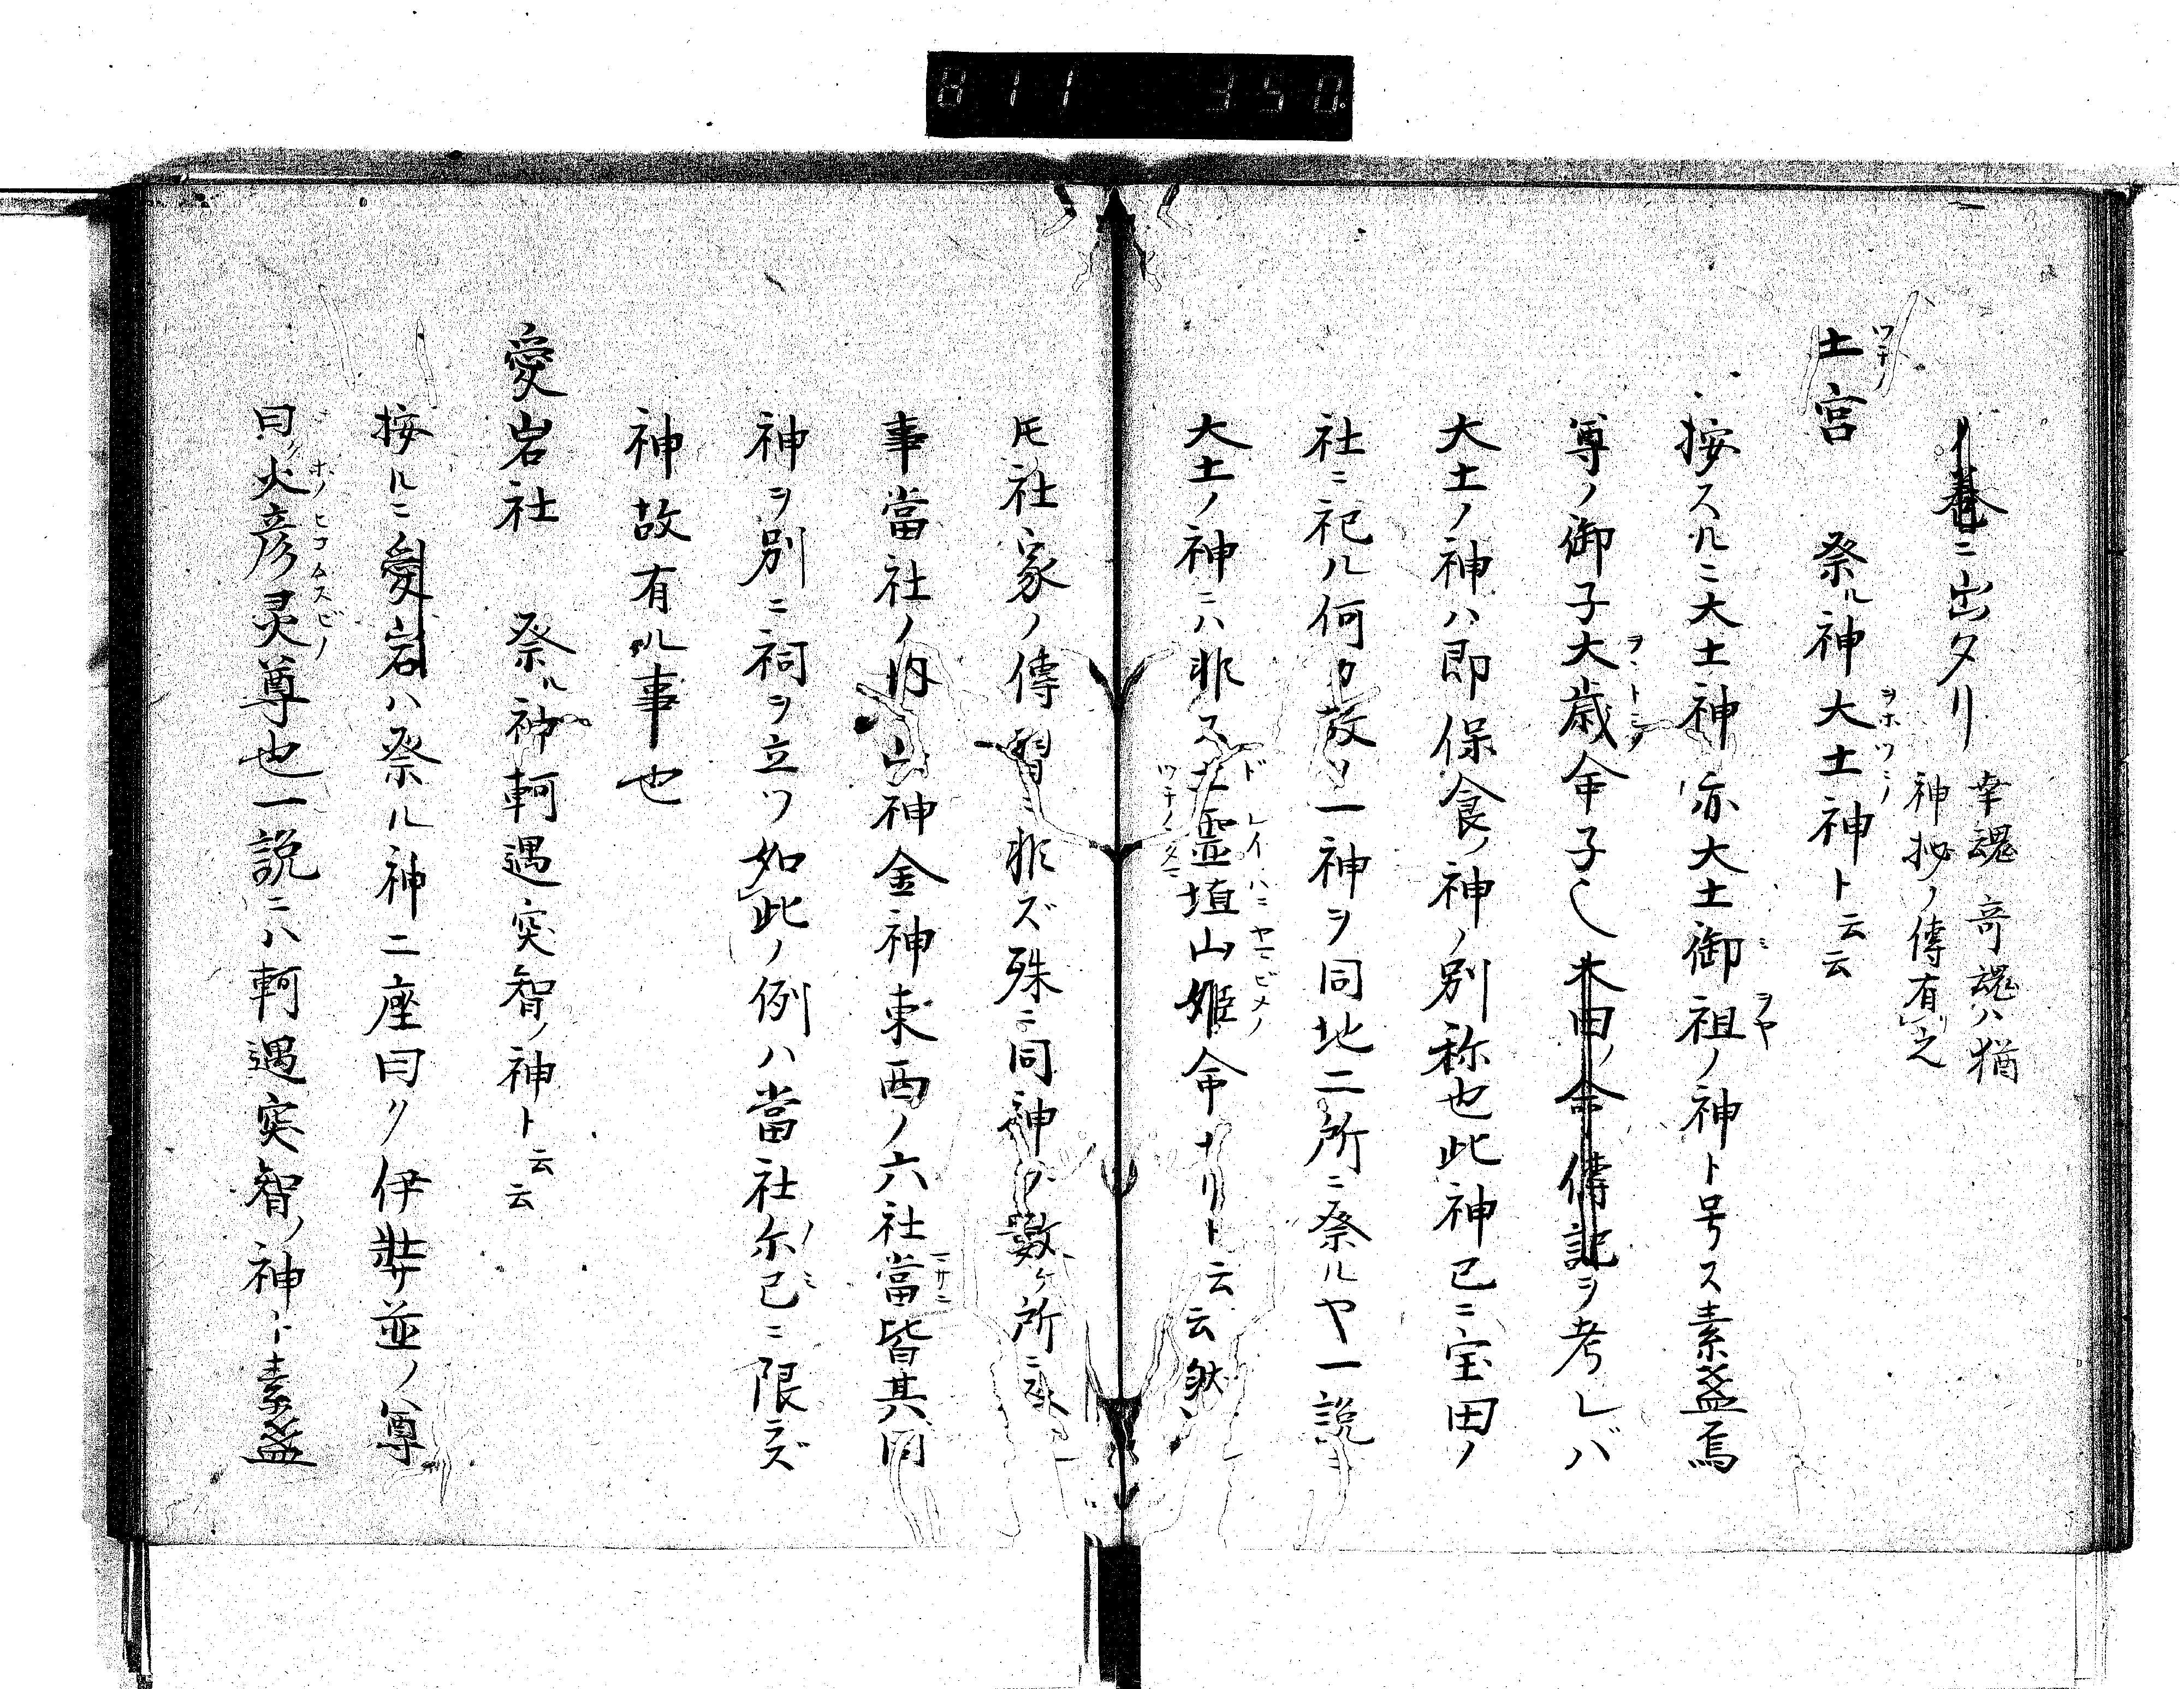 811 350
ノ巻ニ出タリ 幸魂奇魂ハ猶
神抄ノ傳有之
土宮 祭ル神大土神ト云云
ツチノ
ヲホツミノ
按スルニ大土神亦大土御祖ノ神ト号ス素盞烏
ミヲヤ
尊ノ御子大歳命子也木田ノ命傳記ヲ考レバ
大土ノ神ハ即保食ノ神ノ別称也此神已ニ宝田ノ
社ニ祀ル何カ故ニ一神ヲ同地二所ニ祭ルヤ一説ニ
大土ノ神ニハ非ス土霊埴山姫命ナリト云云然レ
ドレイハニヤマビメノ
ツチノタマ
𪜈社家ノ傳習ニ非ズ殊ニ同神ヲ數ケ所ニ祭
事當社ノ内山神金神東西ノ六社當皆其同
神ヲ別ニ祠ヲ立ツ如此ノ例ハ當社尓已ニ限ラズ
ノミ
神故有ル事也
愛岩社 祭ル神軻遇突智ノ神ト云云
按ルニ愛岩ハ祭ル神二座曰ク伊弉並ノ尊
曰ク火彦灵尊也一説ニハ軻遇突智ノ神ト素盞
ホノヒコムスビノ